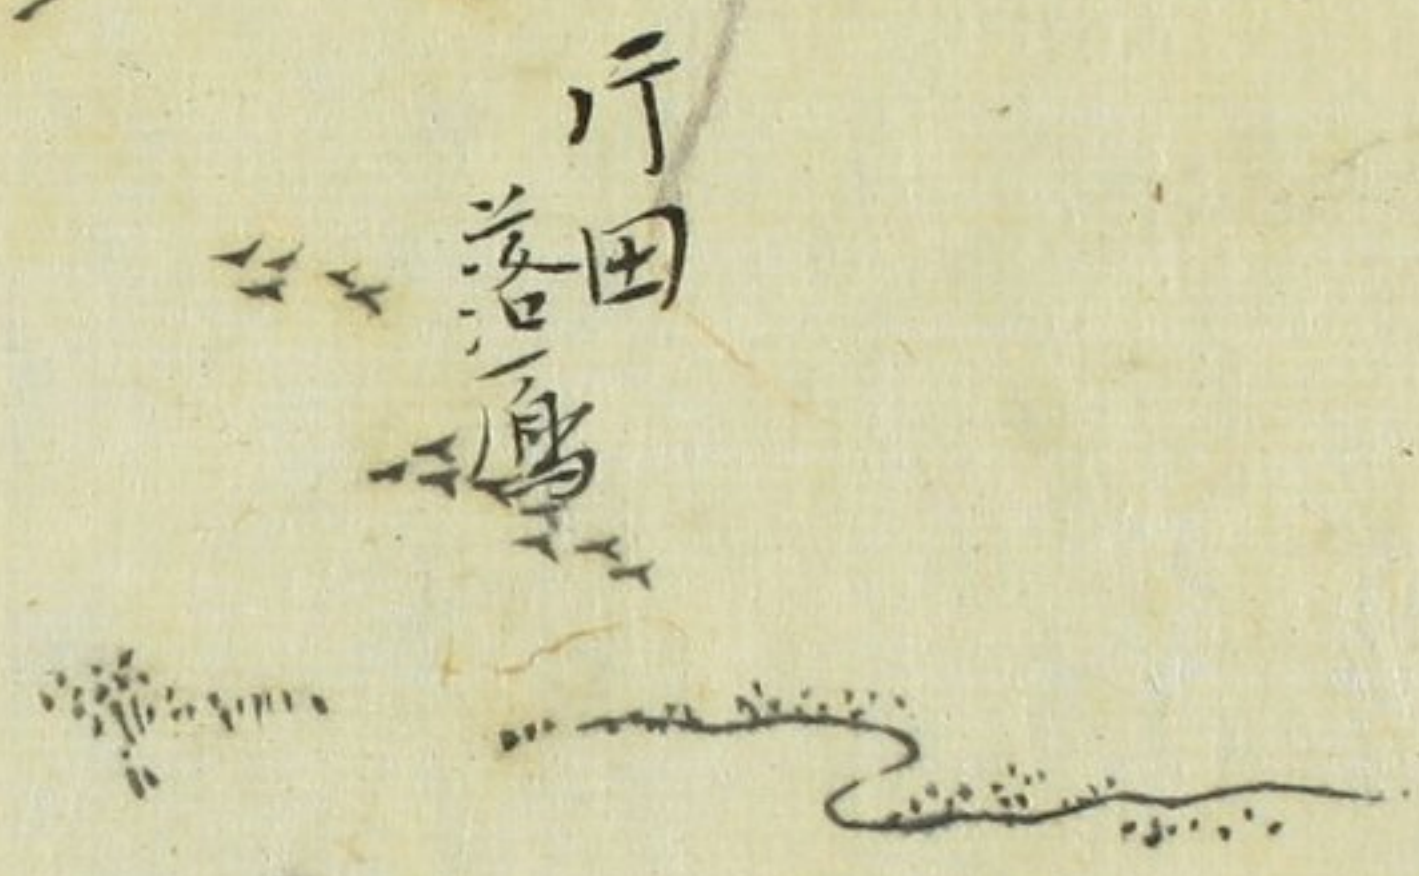 片田
落鴈